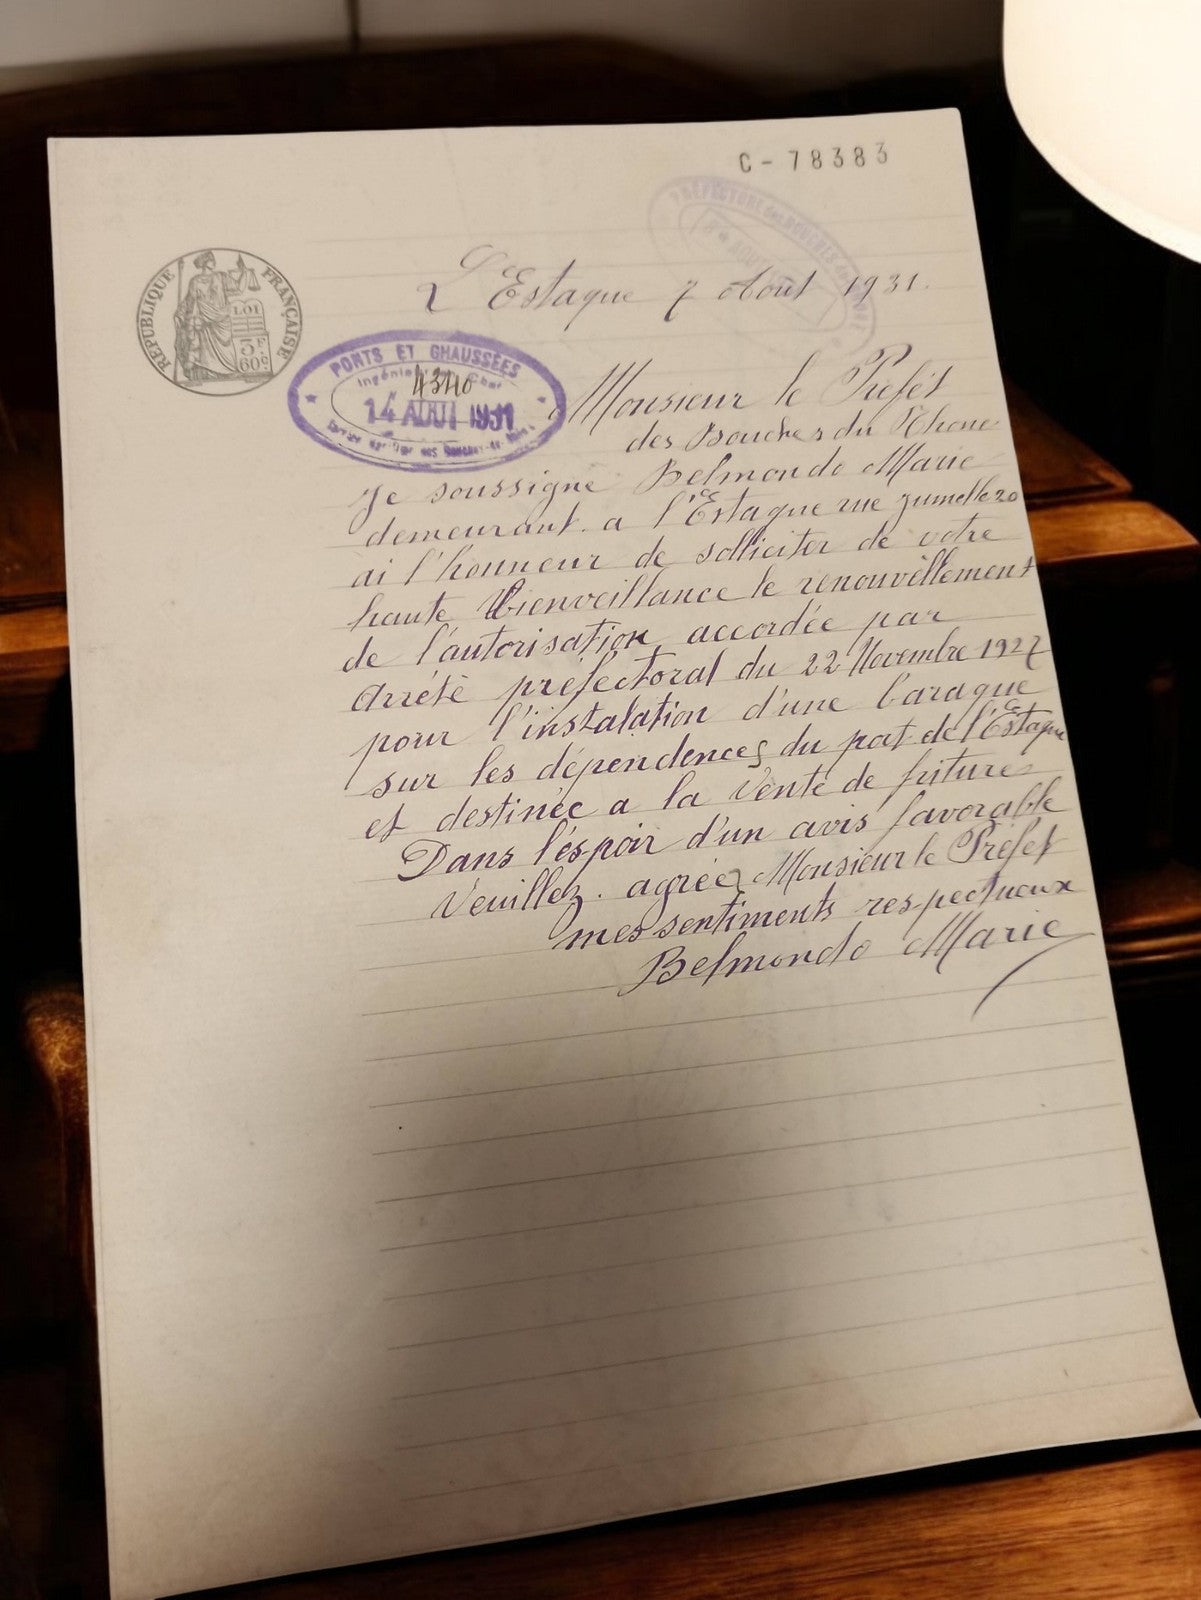 C - 78383
PRÉFECTURE des BOUCHES du
AOUT
L'Estaque 7 Août 1931.
RÉPUBLIQUE FRANÇAISE
LOI
3F
60c
PONTS ET CHAUSSÉES
Ingénieur Chef
43410
14 AOUT 1931
Monsieur le Préfét
des Bouches du Rhone
Je soussigné Belmondo Marie
demeurant. a l'Estaque rue jumelle 20
ai l'honneur de solliciter de votre
haute Bienveillance le renouvèllement
de l'autorisation accordée par
Arrété préfectoral du 22 Novembre 1927
pour l'instalation d'une baraque
sur les dépendences du port de l'Estaque
et destinée a la vente de fritures
Dans l'éspoir d'un avis favorable
Veuillez. agréez Monsieur le Préfet
mes sentiments respectueux
Belmondo Marie